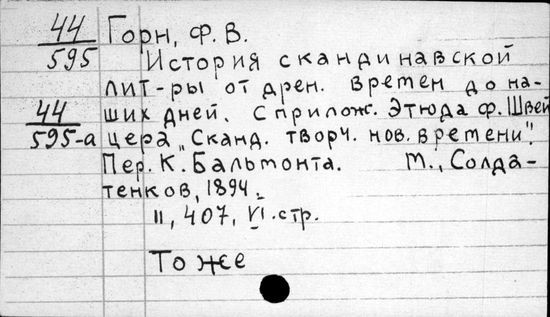 44 Горн, Ф. В.
595 История скандинавской
лит-ры от дрен. времен до на-
44 ших дней. С прилож. Этюда Ф. Швей
595-а цера „Сканд. творч. нов. времени".
Пер. К. Бальмонта. М., Солда-
тенков, 1894.
II, 407, VI стр.
То же